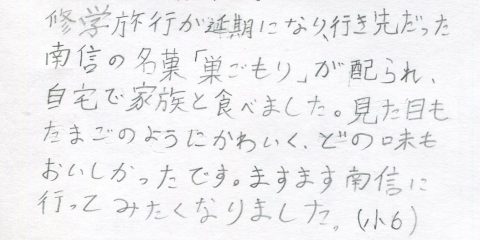 修学旅行が延期になり、行き先だった
南信の名菓「巣ごもり」が配られ、
自宅で家族と食べました。見た目も
たまごのようにかわいく、どの味も
おいしかったです。ますます南信に
行ってみたくなりました。(小6)